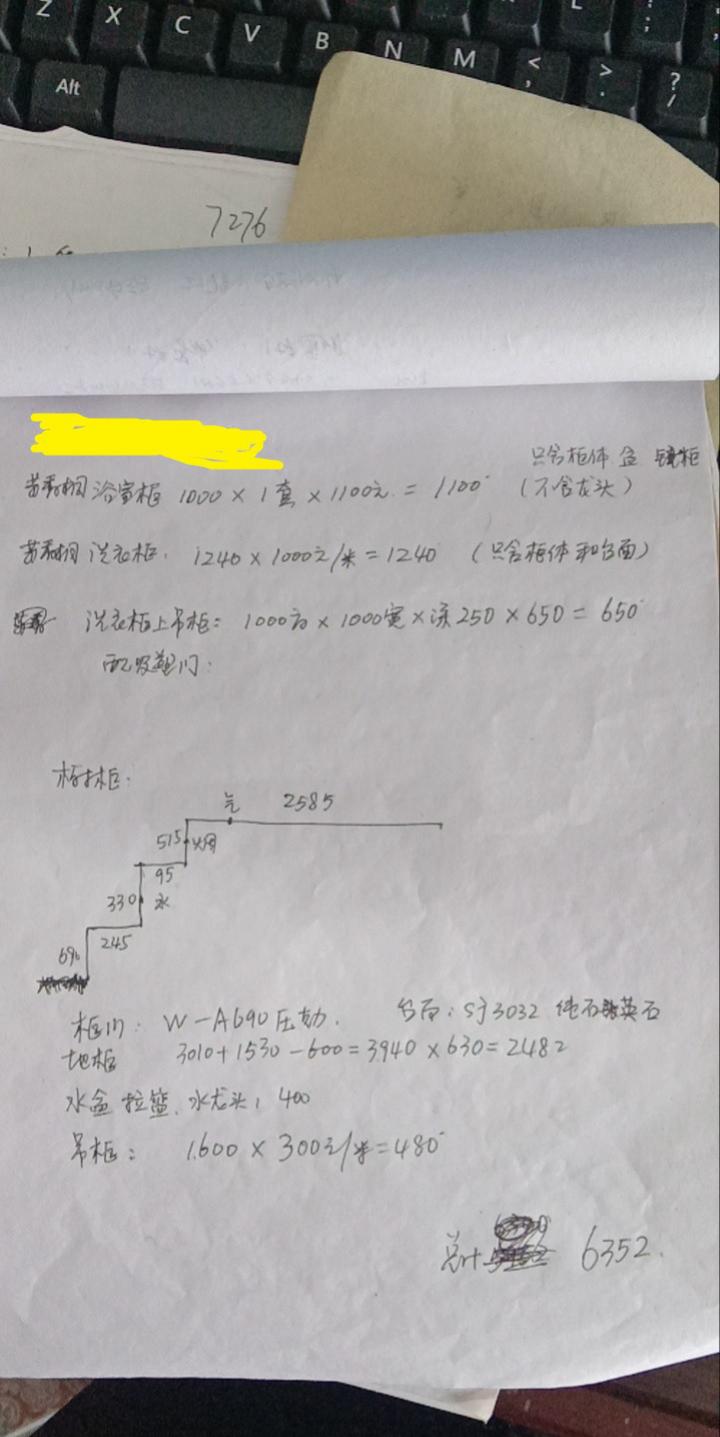 Z X C V B N M < , > . ? /
Alt
7276
只含柜体 盆 镜柜
浴室柜 1000 × 1套 × 1100元 = 1100 (不含龙头)
洗衣柜. 1240 × 1000元/米 = 1240 (只含柜体和台面)
洗衣柜上吊柜: 1000高 × 1000宽 × 深250 × 650 = 650
配吸塑门:
柜:
气 2585
515
95
330 水
245
690
柜门: W-A690 压. 台面: Sj3032 纯石英石
地柜 3010+1530-600=3940×630=2482
水盆 拉篮. 水龙头: 400
吊柜: 1.600 × 300元/米=480
总计 6352.